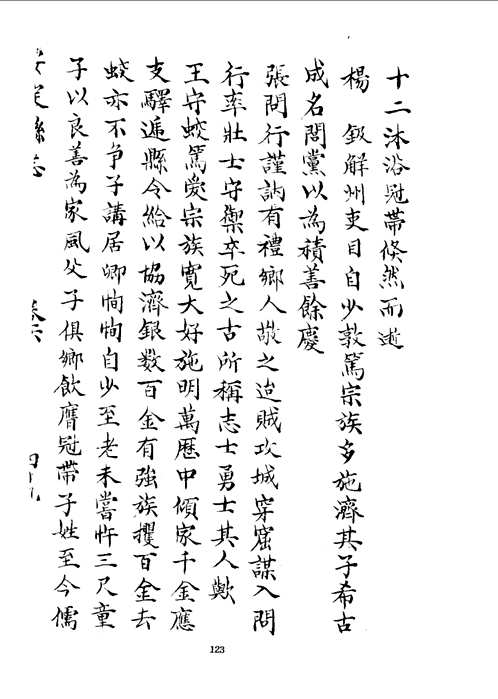 十二沐浴冠帶倏然而逝
楊 釵解州吏目自少敦篤宗族多施濟其子希古
成名閭黨以為積善餘慶
張問行謹訥有禮鄉人敬之迨賊攻城穿窟謀入問
行率壯士守禦卒死之古所稱志士勇士其人歟
王守蛟篤愛宗族寬大好施明萬歷中傾家千金應
支驛遞縣令給以協濟銀数百金有強族攫百金去
蛟亦不爭子講居鄉恂恂自少至老未嘗忤三尺童
子以良善為家風父子俱鄉飲膺冠帶子姓至今儒
安定縣志 卷六 四十九
123